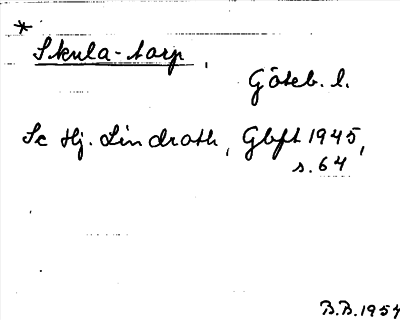 * Skula-torp,
Göteb. l.
Se Hj. Lindroth, Gbft 1945,
s. 64
B.B. 1954